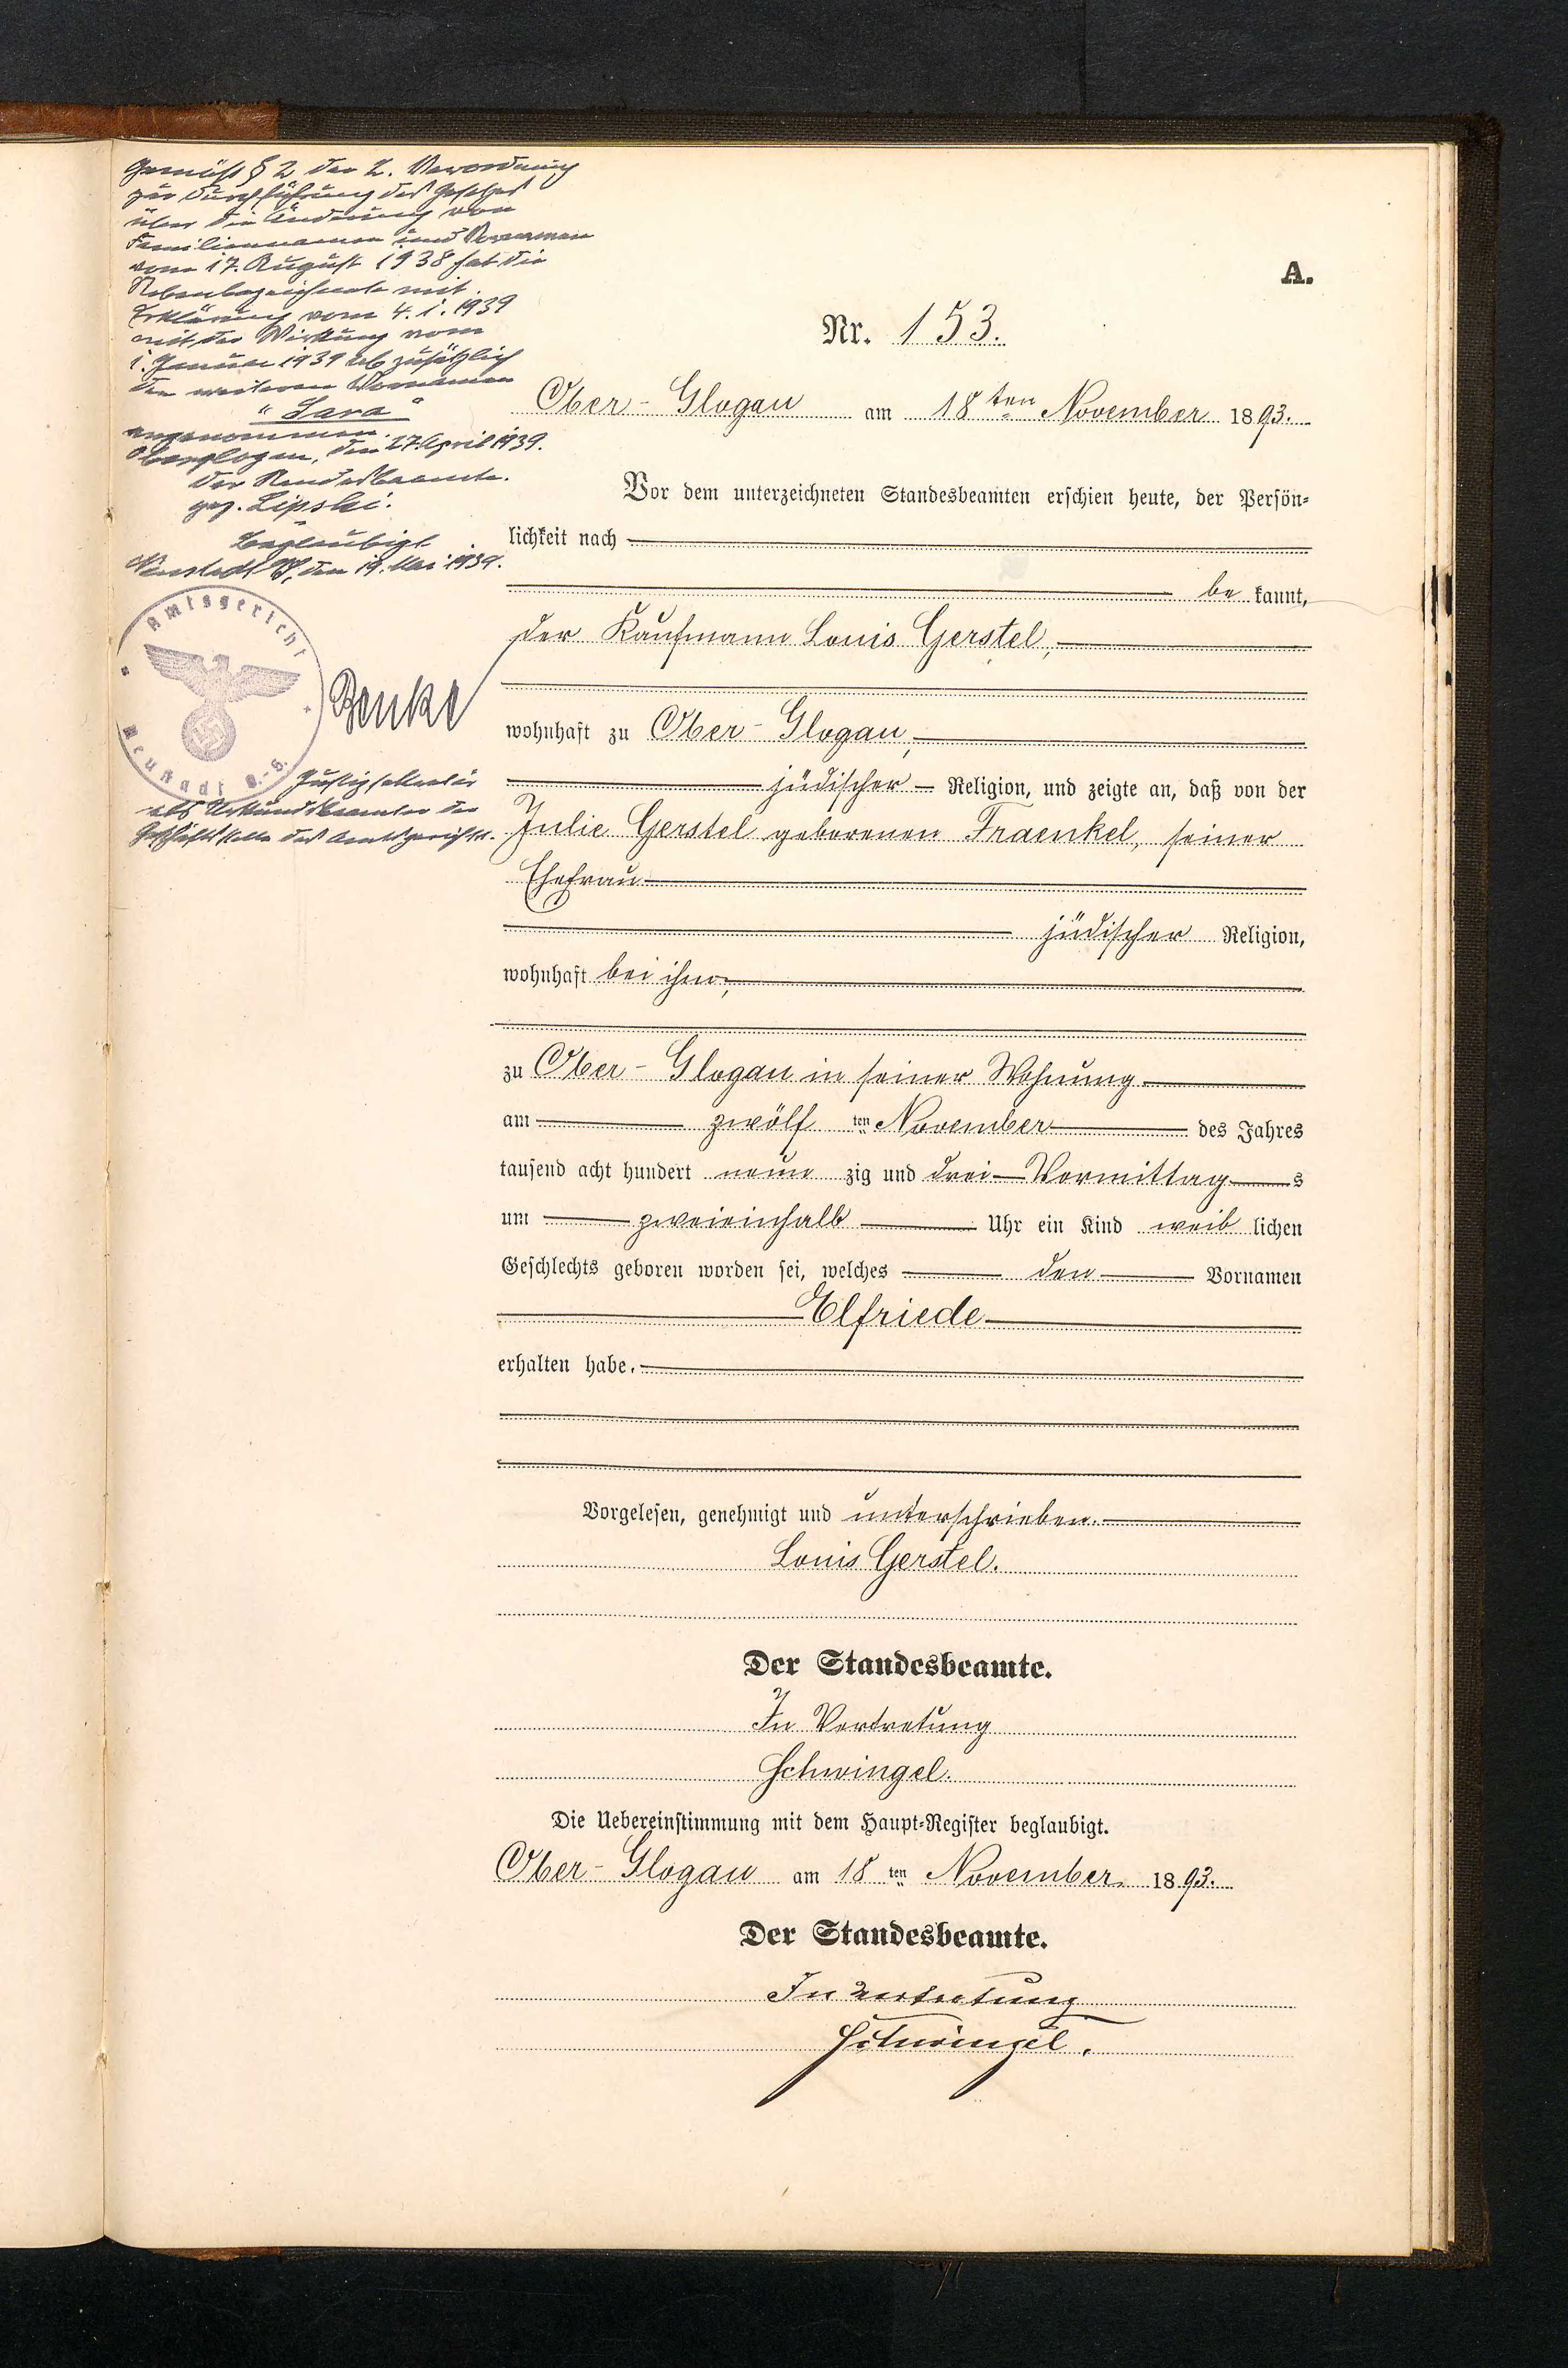 Gemäß § 2 der 2. Verordnung
zur Durchführung des Gesetzes
über die Änderung von
Familiennamen und Vornamen
vom 17. August 1938 hat die
Nebenbezeichnete mit
Erklärung vom 4. 1. 1939
mit der Wirkung vom
1. Januar 1939 ab zusätzlich
den weiteren Vornamen
"Sara"
angenommen.
Oberglogau, den 27. April 1939.
Der Standesbeamte.
gez. Lipski.
Beglaubigt
Neustadt O/S, den 19. Mai 1939.
Amtsgericht
Neustadt O.-S.
Benke
Justizsekretär
als Urkundsbeamter der
Geschäftsstelle des Amtsgerichts.
A.
Nr. 153.
Ober-Glogau am 18ten November 1893.
Vor dem unterzeichneten Standesbeamten erschien heute, der Persön-
lichkeit nach
be kannt,
der Kaufmann Louis Gerstel,
wohnhaft zu Ober-Glogau,
jüdischer Religion, und zeigte an, daß von der
Julie Gerstel geborenen Fraenkel, seiner
Ehefrau
jüdischer Religion,
wohnhaft bei ihm,
zu Ober-Glogau in seiner Wohnung
am zwölf ten November des Jahres
tausend acht hundert neun zig und drei Vormittag s
um zweieinhalb Uhr ein Kind weib lichen
Geschlechts geboren worden sei, welches den Vornamen
Elfriede
erhalten habe.
Vorgelesen, genehmigt und unterschrieben.
Louis Gerstel.
Der Standesbeamte.
In Vertretung
Schwingel.
Die Uebereinstimmung mit dem Haupt-Register beglaubigt.
Ober-Glogau am 18 ten November 1893.
Der Standesbeamte.
In Vertretung
Schwingel.